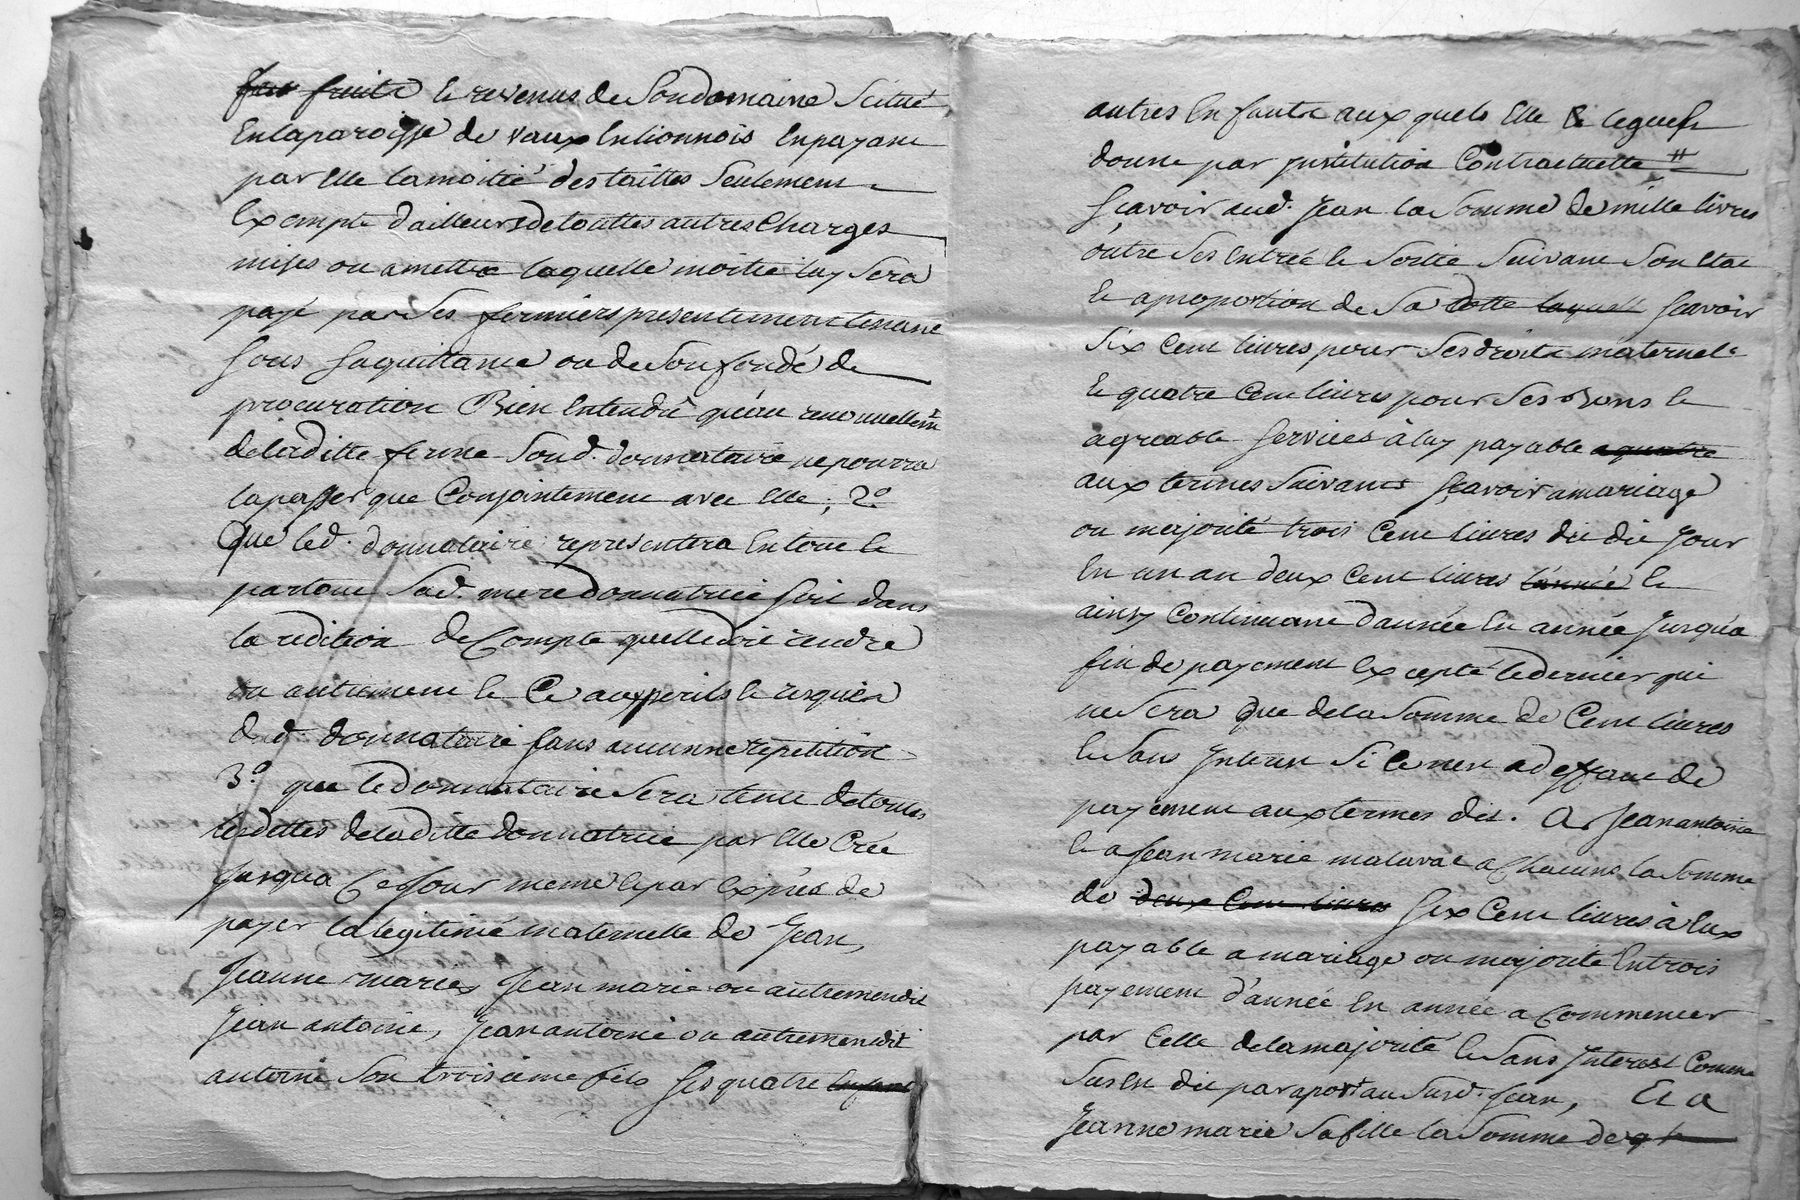 fruits le revenus de Son domaine Scitué
En la paroisse de vaux En lionnois En payant
par Elle la moitié des tailles Seulement
Exempte d'ailleurs de touttes autres Charges
mises ou a mettre laquelle moitié luy Sera
payé par Ses fermiers presentement tenant
Sous Sa quittance ou de Son fondé de
procuration Bien Entendû qu'au renouvellemt
de la ditte ferme Soud. donnataire ne pourra
la passer que Conjointement avec Elle, 2.o
Que led. donnataire representera En tout le
partout Sad. mere donnatrice Soit dans
la redition de Compte quelle doit rendre
ou autrement le Ce aux perils le risques
dud. donnataire Sans aucunne repetition
3.o que le donnataire Sera tenu de toutes
les dettes de la ditte donnatrice par Elle Créé
Jusqua Ce Jour meme le par Exprès de
payer la legitime maternelle de Jean,
Jeanne marie, Jean marie ou autremendit
Jean antoine, Jean antoine ou autremendit
antoine Son troisieme fils Ses quatre Enfant
autres Enfants aux quels Elle legue le
donne par Institution Contractuelle #
Scavoir aud. Jean la Somme de mille livres
outre Ses Entrée le Sortie Suivant Son Etat
le a proportion de Sa dotte laquell Scavoir
Six Cent livres pour Ses droits maternels
le quatre Cent livres pour Ses Bons le
agreable Services à luy payable a quatre
aux termes Suivants Scavoir a mariage
ou majorité trois Cent livres dit dit Jour
En un an deux Cent livres l'année le
ainsy Continuant d'année En année Jusqu'a
fin de payement Excepté le dernier qui
ne Sera que de la Somme de Cent livres
le Sans Interest Si Ce n'est a deffaut de
payement aux termes dit. A Jean antoine
le a Jean marie malaval a Chacuns la Somme
de deux Cent livres Six Cent livres à Eux
payable a mariage ou majorité En trois
payement d'année En année a Commencer
par Celle de la majorité le Sans Interest Comme
Sus En dit par aport au Sud. Jean, Et a
Jeanne marie Sa fille la Somme de